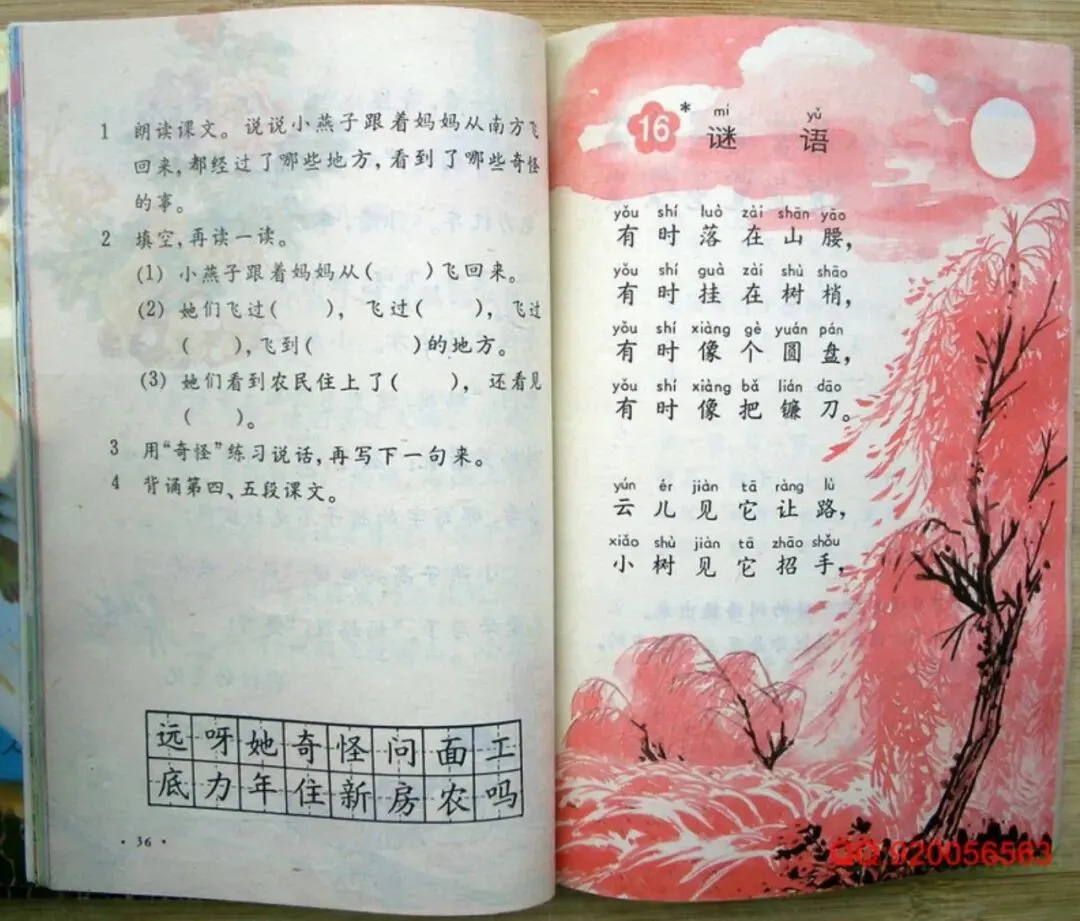 1 朗读课文。说说小燕子跟着妈妈从南方飞
回来,都经过了哪些地方,看到了哪些奇怪
的事。
2 填空,再读一读。
(1) 小燕子跟着妈妈从( )飞回来。
(2) 她们飞过( ), 飞过( ), 飞过
( ),飞到( )的地方。
(3) 她们看到农民住上了( ), 还看见
( )。
3 用“奇怪”练习说话,再写下一句来。
4 背诵第四、五段课文。
远呀她奇怪问面工
底力年住新房农吗
· 36 ·
16 *
mí yǔ
谜语
yǒu shí luò zài shān yāo
有时落在山腰,
yǒu shí guà zài shù shāo
有时挂在树梢,
yǒu shí xiàng gè yuán pán
有时像个圆盘,
yǒu shí xiàng bǎ lián dāo
有时像把镰刀。
yún ér jiàn tā ràng lù
云儿见它让路,
xiǎo shù jiàn tā zhāo shǒu
小树见它招手,
QQ 920056563